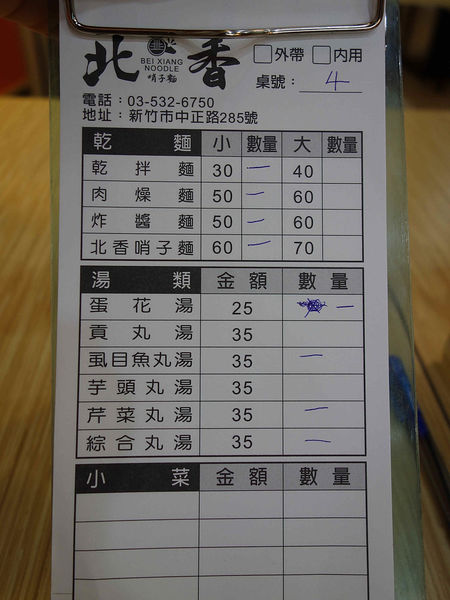 北 BEI XIANG NOODLE 哨子麵 香 □外帶 □內用
桌號： 4
電話：03-532-6750
地址：新竹市中正路285號
乾麵 小 數量 大 數量
乾拌麵 30 一 40
肉燥麵 50 一 60
炸醬麵 50 一 60
北香哨子麵 60 一 70
湯類 金額 數量
蛋花湯 25 一
貢丸湯 35
虱目魚丸湯 35 一
芋頭丸湯 35
芹菜丸湯 35 一
綜合丸湯 35 一
小菜 金額 數量